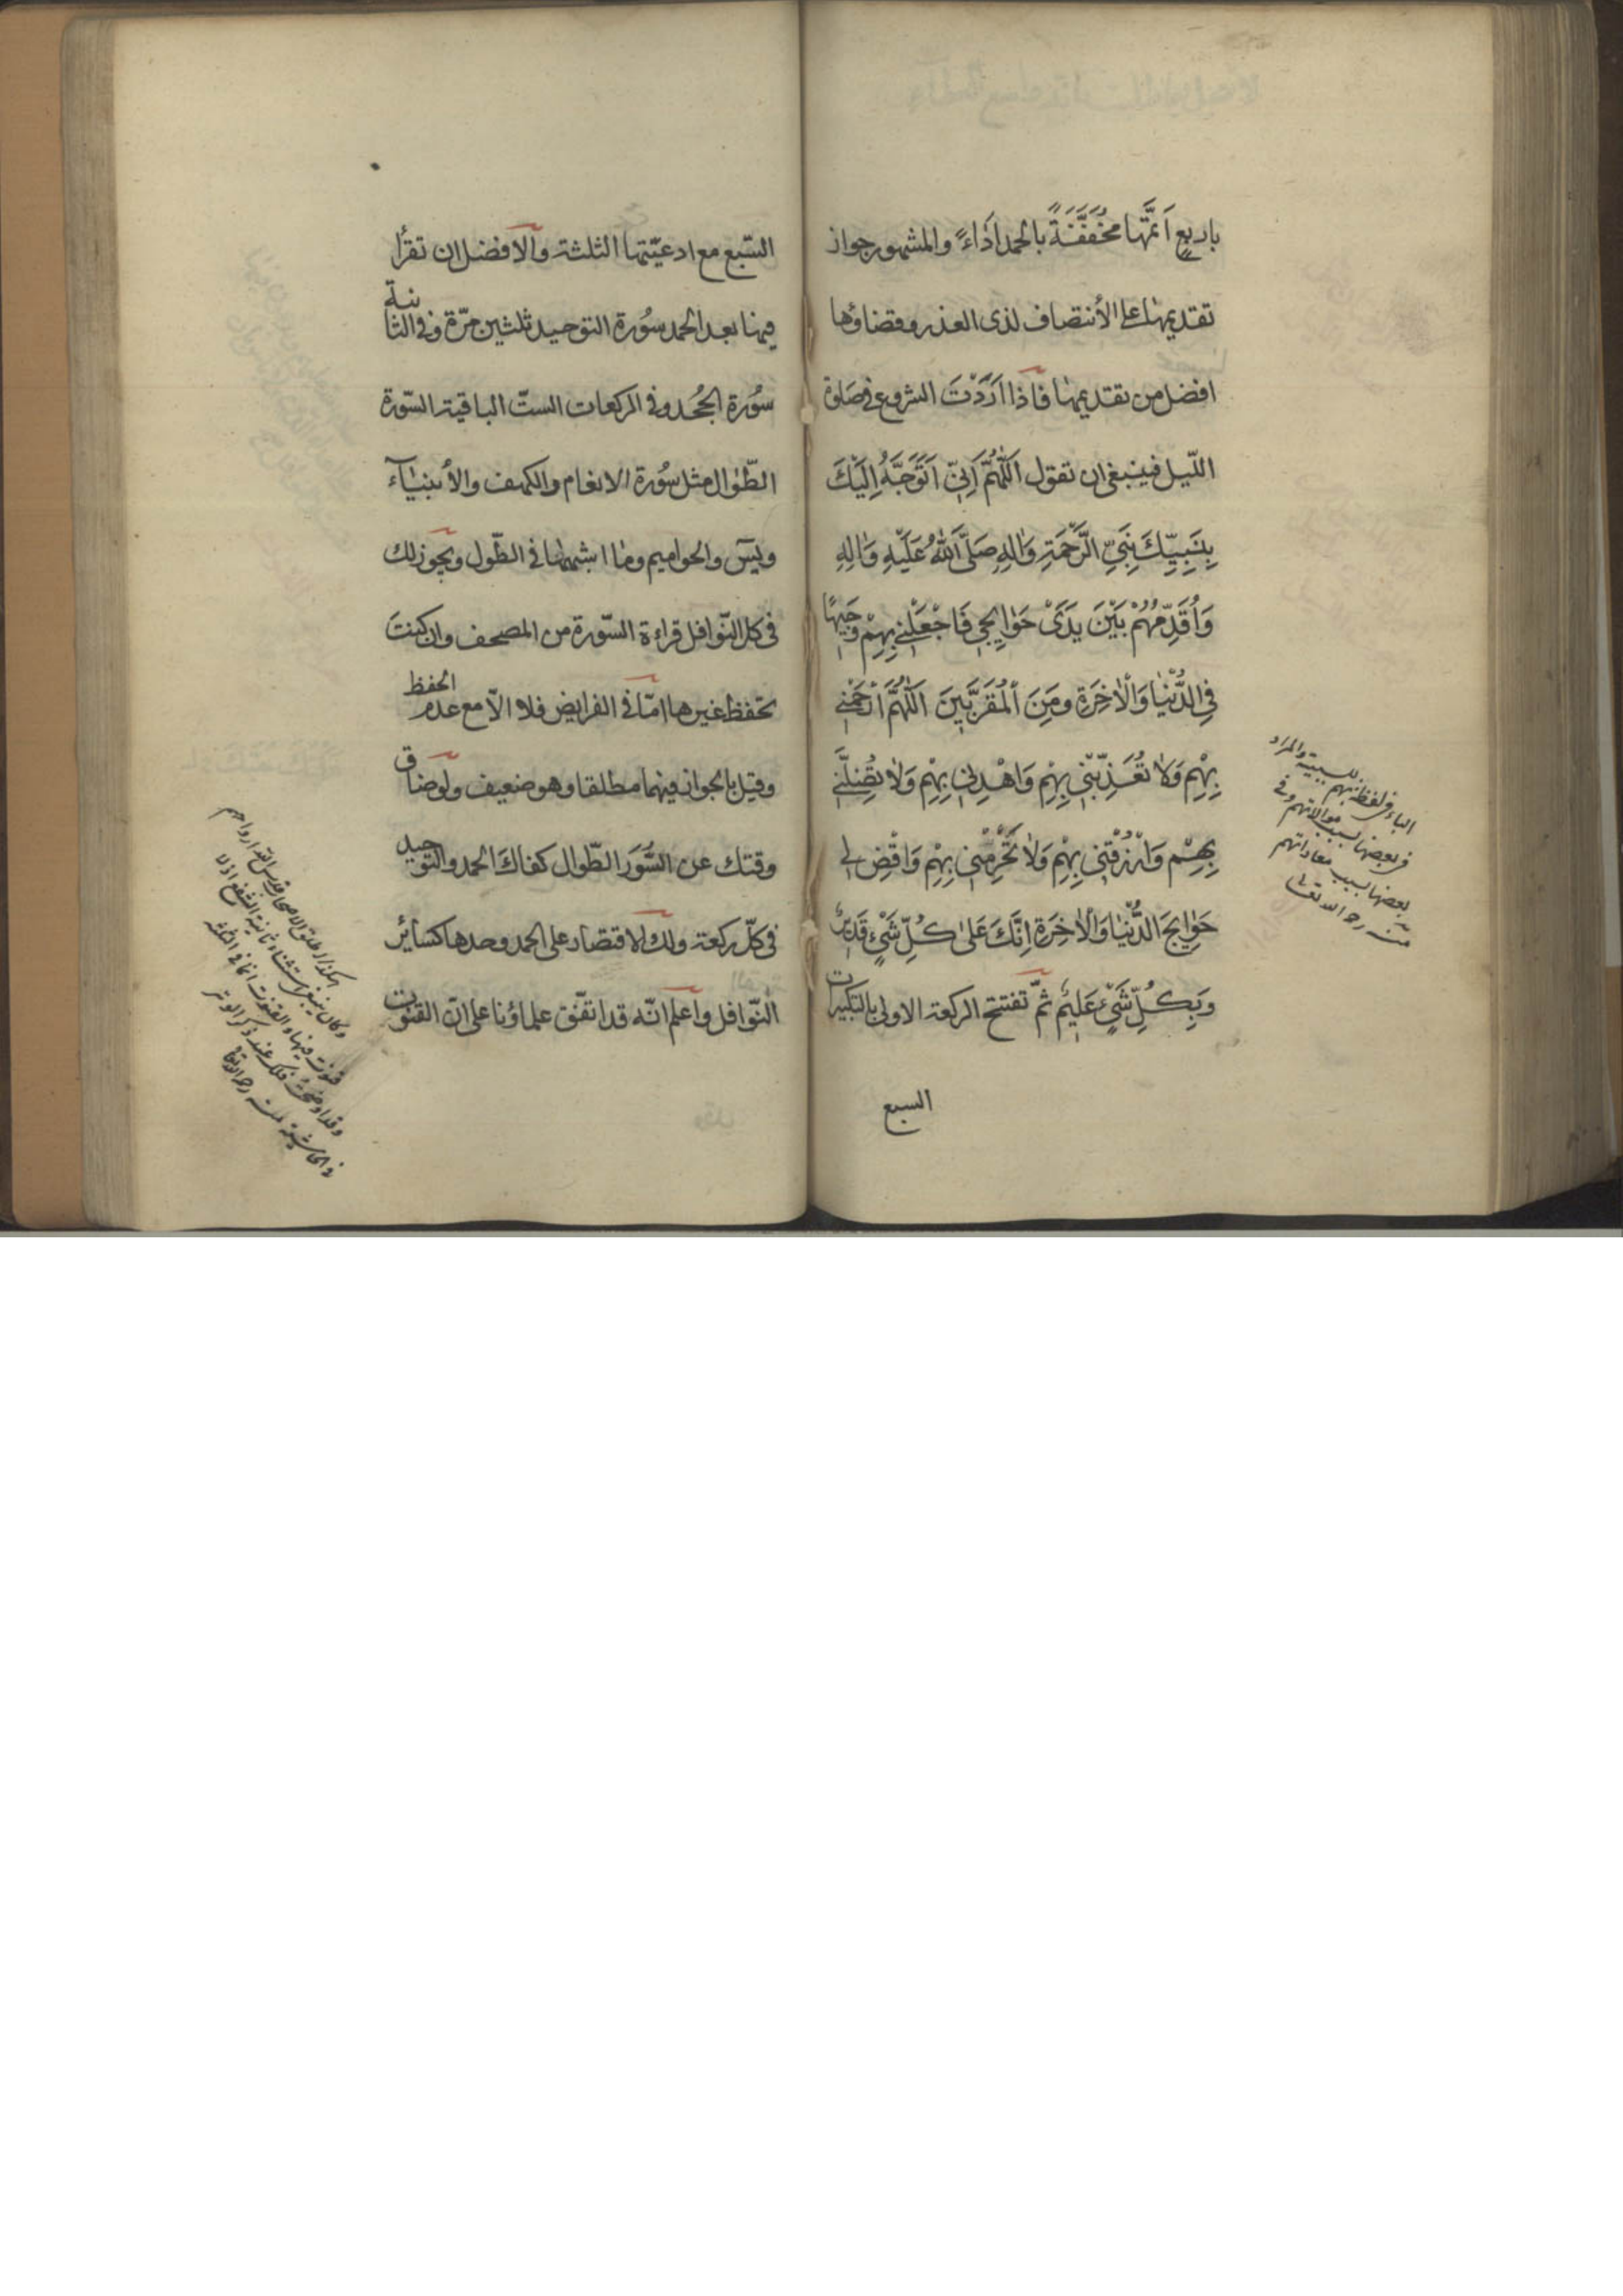 باربع اَتمَّها مخُفَفَّفَةً بالحمد اَدَاءً والمشهور جواز
تقديمها على الأنتصاف لذى العذر وقضاؤها
افضل من تقديمها فاذا اَرَدْتَ الشروع فى صَلوة
اللّيل فينبغى ان تقول اَللّٰهُمَّ اِنّى اَتَوَجَّهُ اِلَيْكَ
بِنَبِيِّكَ نَبِىِّ الرَّحْمَةِ وَاٰلِهِ صَلَّى اللّٰهُ عَلَيْهِ وَاٰلِهِ
وَاُقَدِّمُهُمْ بَيْنَ يَدَىْ حَوٰايِجى فَاجْعَلْنى بِهِمْ وَجيهًا
فِى الدُّنْيٰا وَالْاٰخِرَةِ وَمِنَ الْمُقَرَّبينَ اَللّٰهُمَّ ارْحَمْنى
بِهِمْ وَلاٰ تُعَذِّبْنى بِهِمْ وَاهْدِنى بِهِمْ وَلاٰ تُضِلَّنى
بِهِمْ وَارْزُقْنى بِهِمْ وَلاٰ تَحْرِمْنى بِهِمْ وَاقْضِ لى
حَوٰايِجَ الدُّنْيٰا وَالْاٰخِرَةِ اِنَّكَ عَلىٰ كُلِّ شَىْءٍ قَديرٌ
وَبِكُلِّ شَىْءٍ عَليمٌ ثمّ تفتتح الركعة الاولى بالتكبيرات
السبع
الباء فى لفظة بهم للسببية والمراد
فى بعضها بسبب موالاتهم وفى
بعضها بسبب معاداتهم
منه رحمه الله تعالى
السّبع مع ادعيّتها الثلثة والافضل ان تقرأ
فيها بعد الحمد سُورة التوحيد ثلثين مرّة وفى الثانية
سُورة الجُحد وفى الركعات الستّ الباقية السّورة
الطّوال مثل سُورة الانعام والكهف والأنبيٰآء
ويسۤ والحواميم ومٰا اشبهها فى الطّول ويجوز لك
فى كل النّوافل قراءة السّورة من المصحف وان كنتَ
تحفظ غيرها امّا فى الفرايض فلا الاّ مع عدم الحفظ
وقيل بالجواز فيهما مطلقا وهو ضعيف ولو ضاق
وقتك عن السُّوَر الطّوال كفاكَ الحمد والتوحيد
فى كلّ ركعة ولك الاقتصار على الحمد وحدها كسائر
النّوافل واعلم انّه قد اتفّق علماؤنا على انّ القنوت
هكذا اطلق الاصحاب قدس الله ارواحهم
وكان ينبغى استثناء ثانية الشفع اذ لا
قنوت فيها والقنوت انما فى الثالثة
وقد اوضحت ذلك عند ذكر الوتر
فى الحاشية منه رحمه الله تعالى